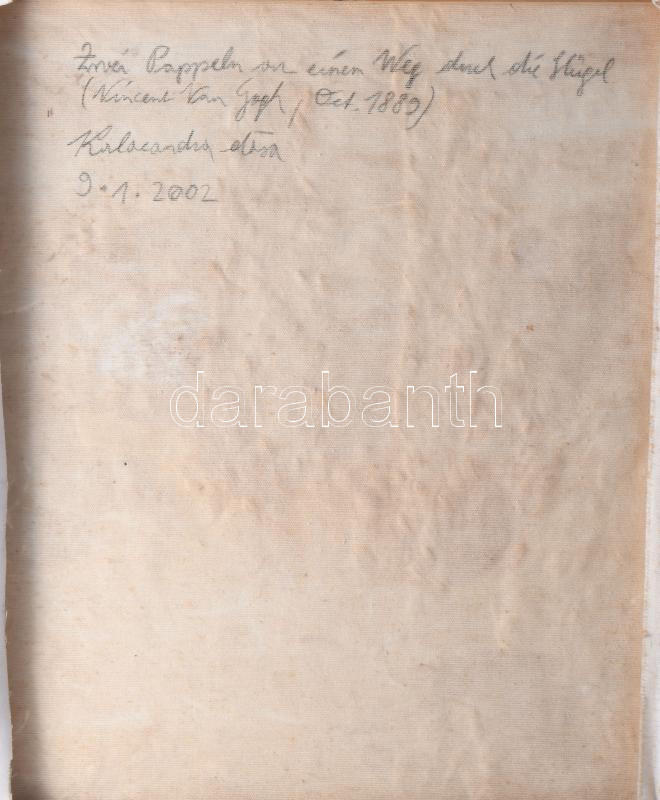 Zwei Pappeln an einem Weg durch die Hügel
(Vincent Van Gogh, Oct. 1889)
Kalacandra dasa
9.1.2002
darabanth